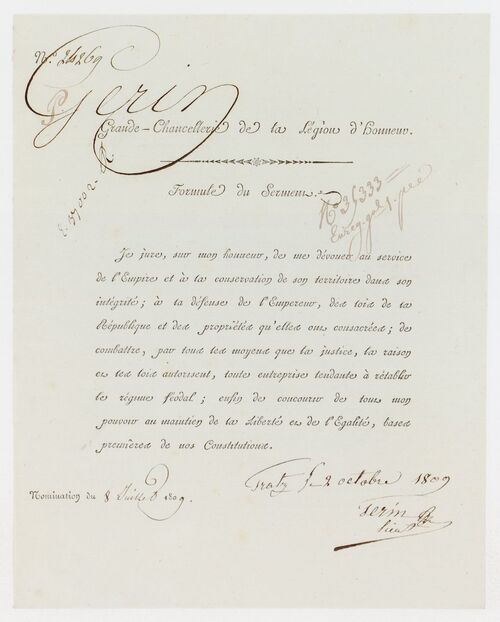 N.° 24269
Gerin
Grande-Chancellerie de la Légion d'Honneur.
Formule du Serment.
N° 35333
Enreg. gal
Je jure, sur mon honneur, de me dévouer au service
de l'Empire et à la conservation de son territoire dans son
intégrité; à la défense de l'Empereur, des lois de la
République et des propriétés qu'elles ont consacrées; de
combattre, par tous les moyens que la justice, la raison
et les lois autorisent, toute entreprise tendante à rétablir
le régime féodal; enfin de concourir de tout mon
pouvoir au maintien de la Liberté et de l'Égalité, bases
premières de nos Constitutions.
Gratz le 2 octobre 1809
Nomination du 8 Juillet 1809.
Gerin